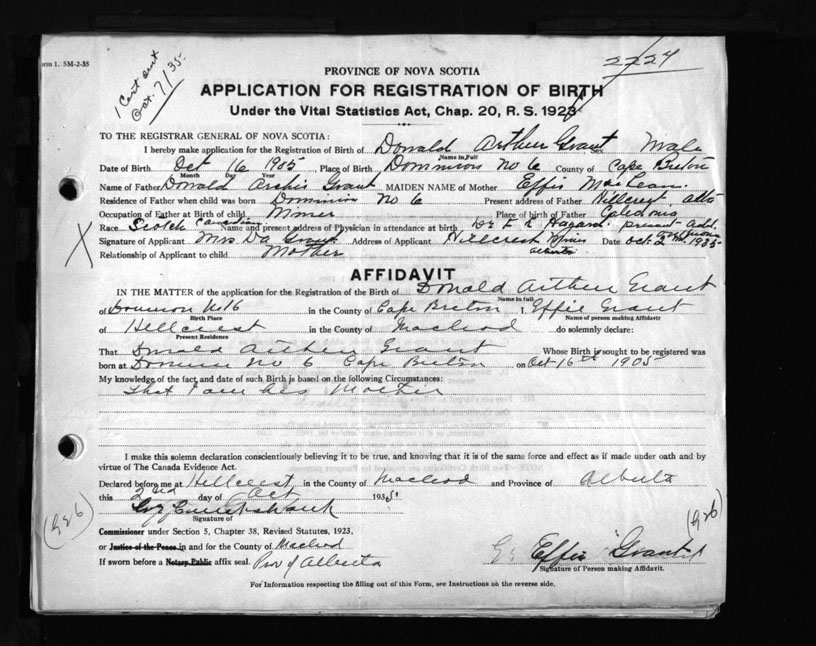 orm 1. 5M-2-35
1 Cert sent
Oct. 7/35.
2724
PROVINCE OF NOVA SCOTIA
APPLICATION FOR REGISTRATION OF BIRTH
Under the Vital Statistics Act, Chap. 20, R. S. 1923
TO THE REGISTRAR GENERAL OF NOVA SCOTIA:
I hereby make application for the Registration of Birth of Donald Arthur Grant Sex Male
Name in Full
Date of Birth Oct 16 1905, Place of Birth Dominion No 6 County of Cape Breton
Month Day Year
Name of Father Donald Archie Grant MAIDEN NAME of Mother Effie MacLean.
Residence of Father when child was born Dominion No 6 Present address of Father Hillcrest, Alta
Occupation of Father at Birth of child Miner Place of birth of Father Caledonia
Race Scotch Canadian Name and present address of Physician in attendance at birth Dr E R Hagard. present add.
Signature of Applicant Mrs D a Grant Address of Applicant Hillcrest Mines Date Oct. 2nd 1935
Relationship of Applicant to child Mother Alberta
AFFIDAVIT
IN THE MATTER of the application for the Registration of the Birth of Donald Arthur Grant
Name in full
of Dominion No 6 in the County of Cape Breton I, Effie Grant
Birth Place Name of person making Affidavit
of Hillcrest in the County of Macleod do solemnly declare:
Present Residence
That Donald Arthur Grant Whose Birth is sought to be registered was
born at Dominion No 6 Cape Breton on Oct 16th 1905
My knowledge of the fact and date of such Birth is based on the following Circumstances:
That I am his Mother
I make this solemn declaration conscientiously believing it to be true, and knowing that it is of the same force and effect as if made under oath and by
virtue of The Canada Evidence Act.
Declared before me at Hillcrest in the County of Macleod and Province of Alberta
this 2nd day of Oct 1935.
Signature of
Commissioner under Section 5, Chapter 38, Revised Statutes, 1923,
or Justice of the Peace in and for the County of Macleod
If sworn before a Notary Public affix seal. Prov of Alberta
Effie Grant
Signature of Person making Affidavit.
For Information respecting the filling out of this Form, see Instructions on the reverse side.